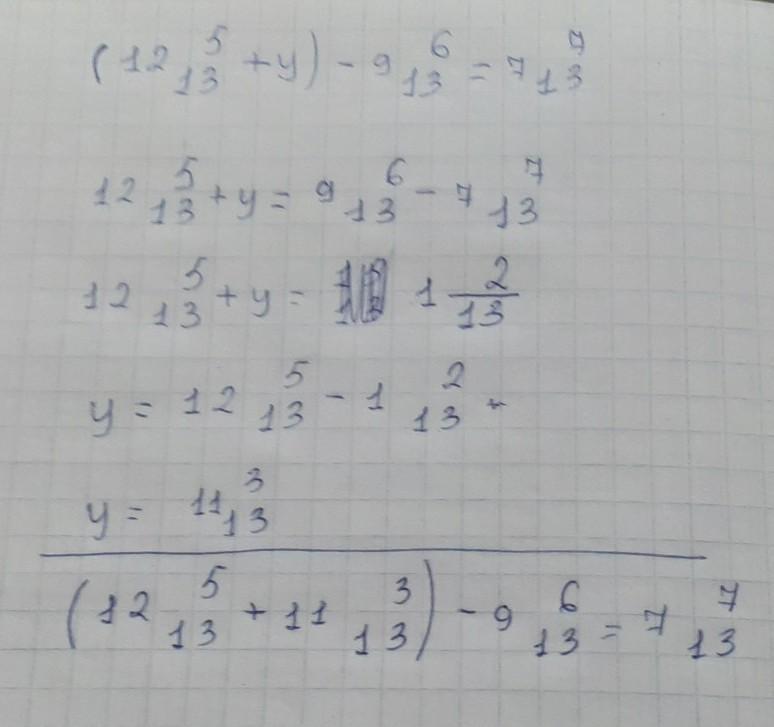 (12 5/13 + y) - 9 6/13 = 7 7/13
12 5/13 + y = 9 6/13 - 7 7/13
12 5/13 + y = 1 2/13
y = 12 5/13 - 1 2/13
y = 11 3/13
(12 5/13 + 11 3/13) - 9 6/13 = 7 7/13